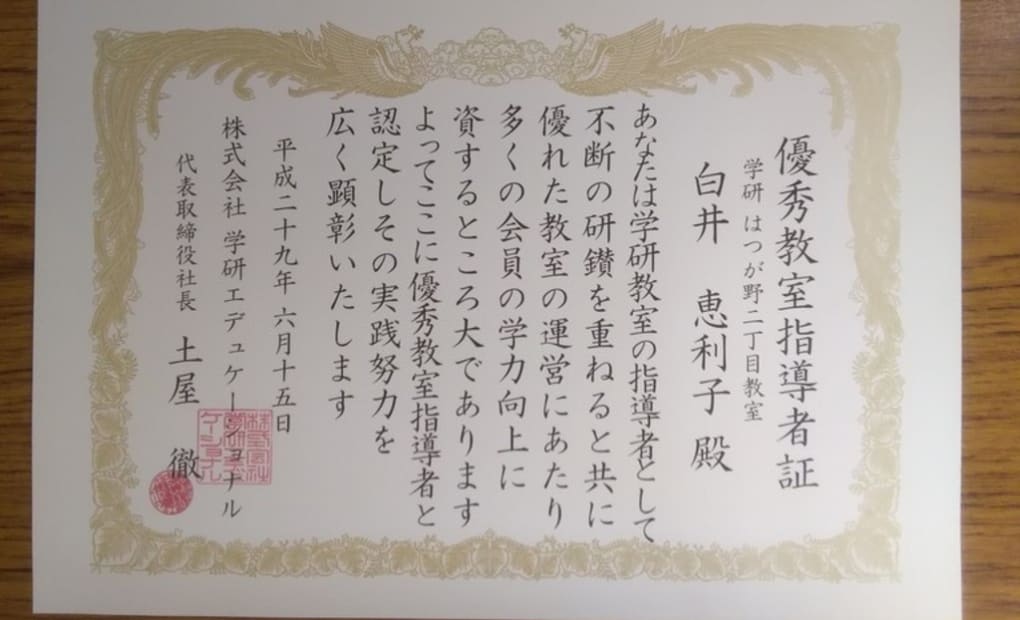 優秀教室指導者証
学研 はつが野二丁目教室
白井 恵利子 殿
あなたは学研教室の指導者として
不断の研鑽を重ねると共に
優れた教室の運営にあたり
多くの会員の学力向上に
資するところ大であります
よってここに優秀教室指導者と
認定しその実践努力を
広く顕彰いたします
平成二十九年 六月十五日
株式会社 学研エデュケーショナル
代表取締役社長 土屋 徹